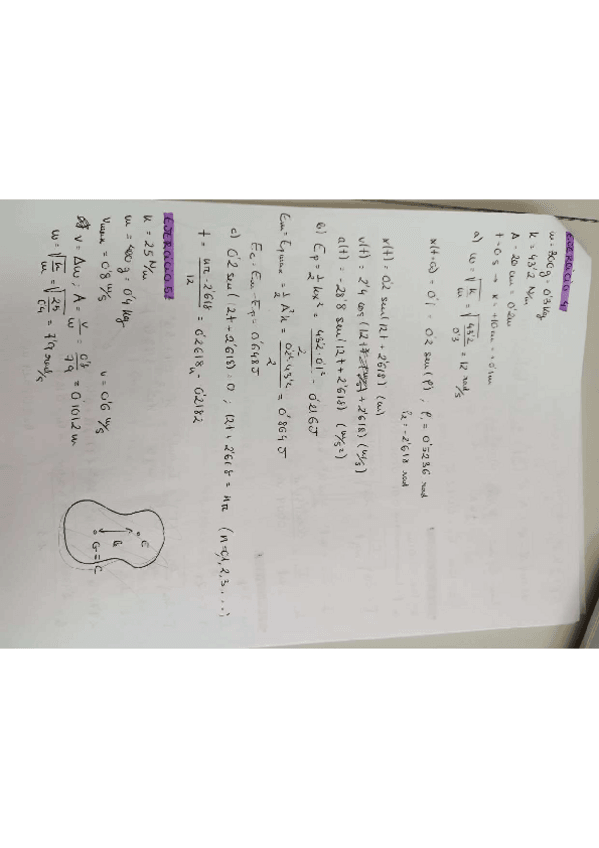 EJERCICIO 4:
m = 300 g = 0'3 kg
k = 43'2 N/m
A = 20 cm = 0'2 m
t = 0 s → x = +10 cm = +0'1 m
a) ω = √(k/m) = √(43'2/0'3) = 12 rad/s
x(t=0) = 0'1 = 0'2 sen(φ) ; φ1 = 0'5236 rad
φ2 = 2'618 rad
x(t) = 0'2 sen(12t + 2'618) (m)
v(t) = 2'4 cos(12t + 2'618) (m/s)
a(t) = -28'8 sen(12t + 2'618) (m/s²)
b) Ep = 1/2 kx² = 43'2·0'1²/2 = 0'216 J
Em = Epmax = 1/2 A²k = 0'2²·43'2/2 = 0'864 J
Ec = Em - Ep = 0'648 J
c) 0'2 sen(12t + 2'618) = 0 ; 12t + 2'618 = nπ (n=0,1,2,3,...)
t = nπ - 2'618/12 = 0'2618n - 0'2182
EJERCICIO 5:
k = 25 N/m
m = 400 g = 0'4 kg
vmax = 0'8 m/s v = 0'6 m/s
v = Aω ; A = v/ω = 0'8/7'9 = 0'1012 m
ω = √(k/m) = √(25/0'4) = 7'9 rad/s
E
G
G = C